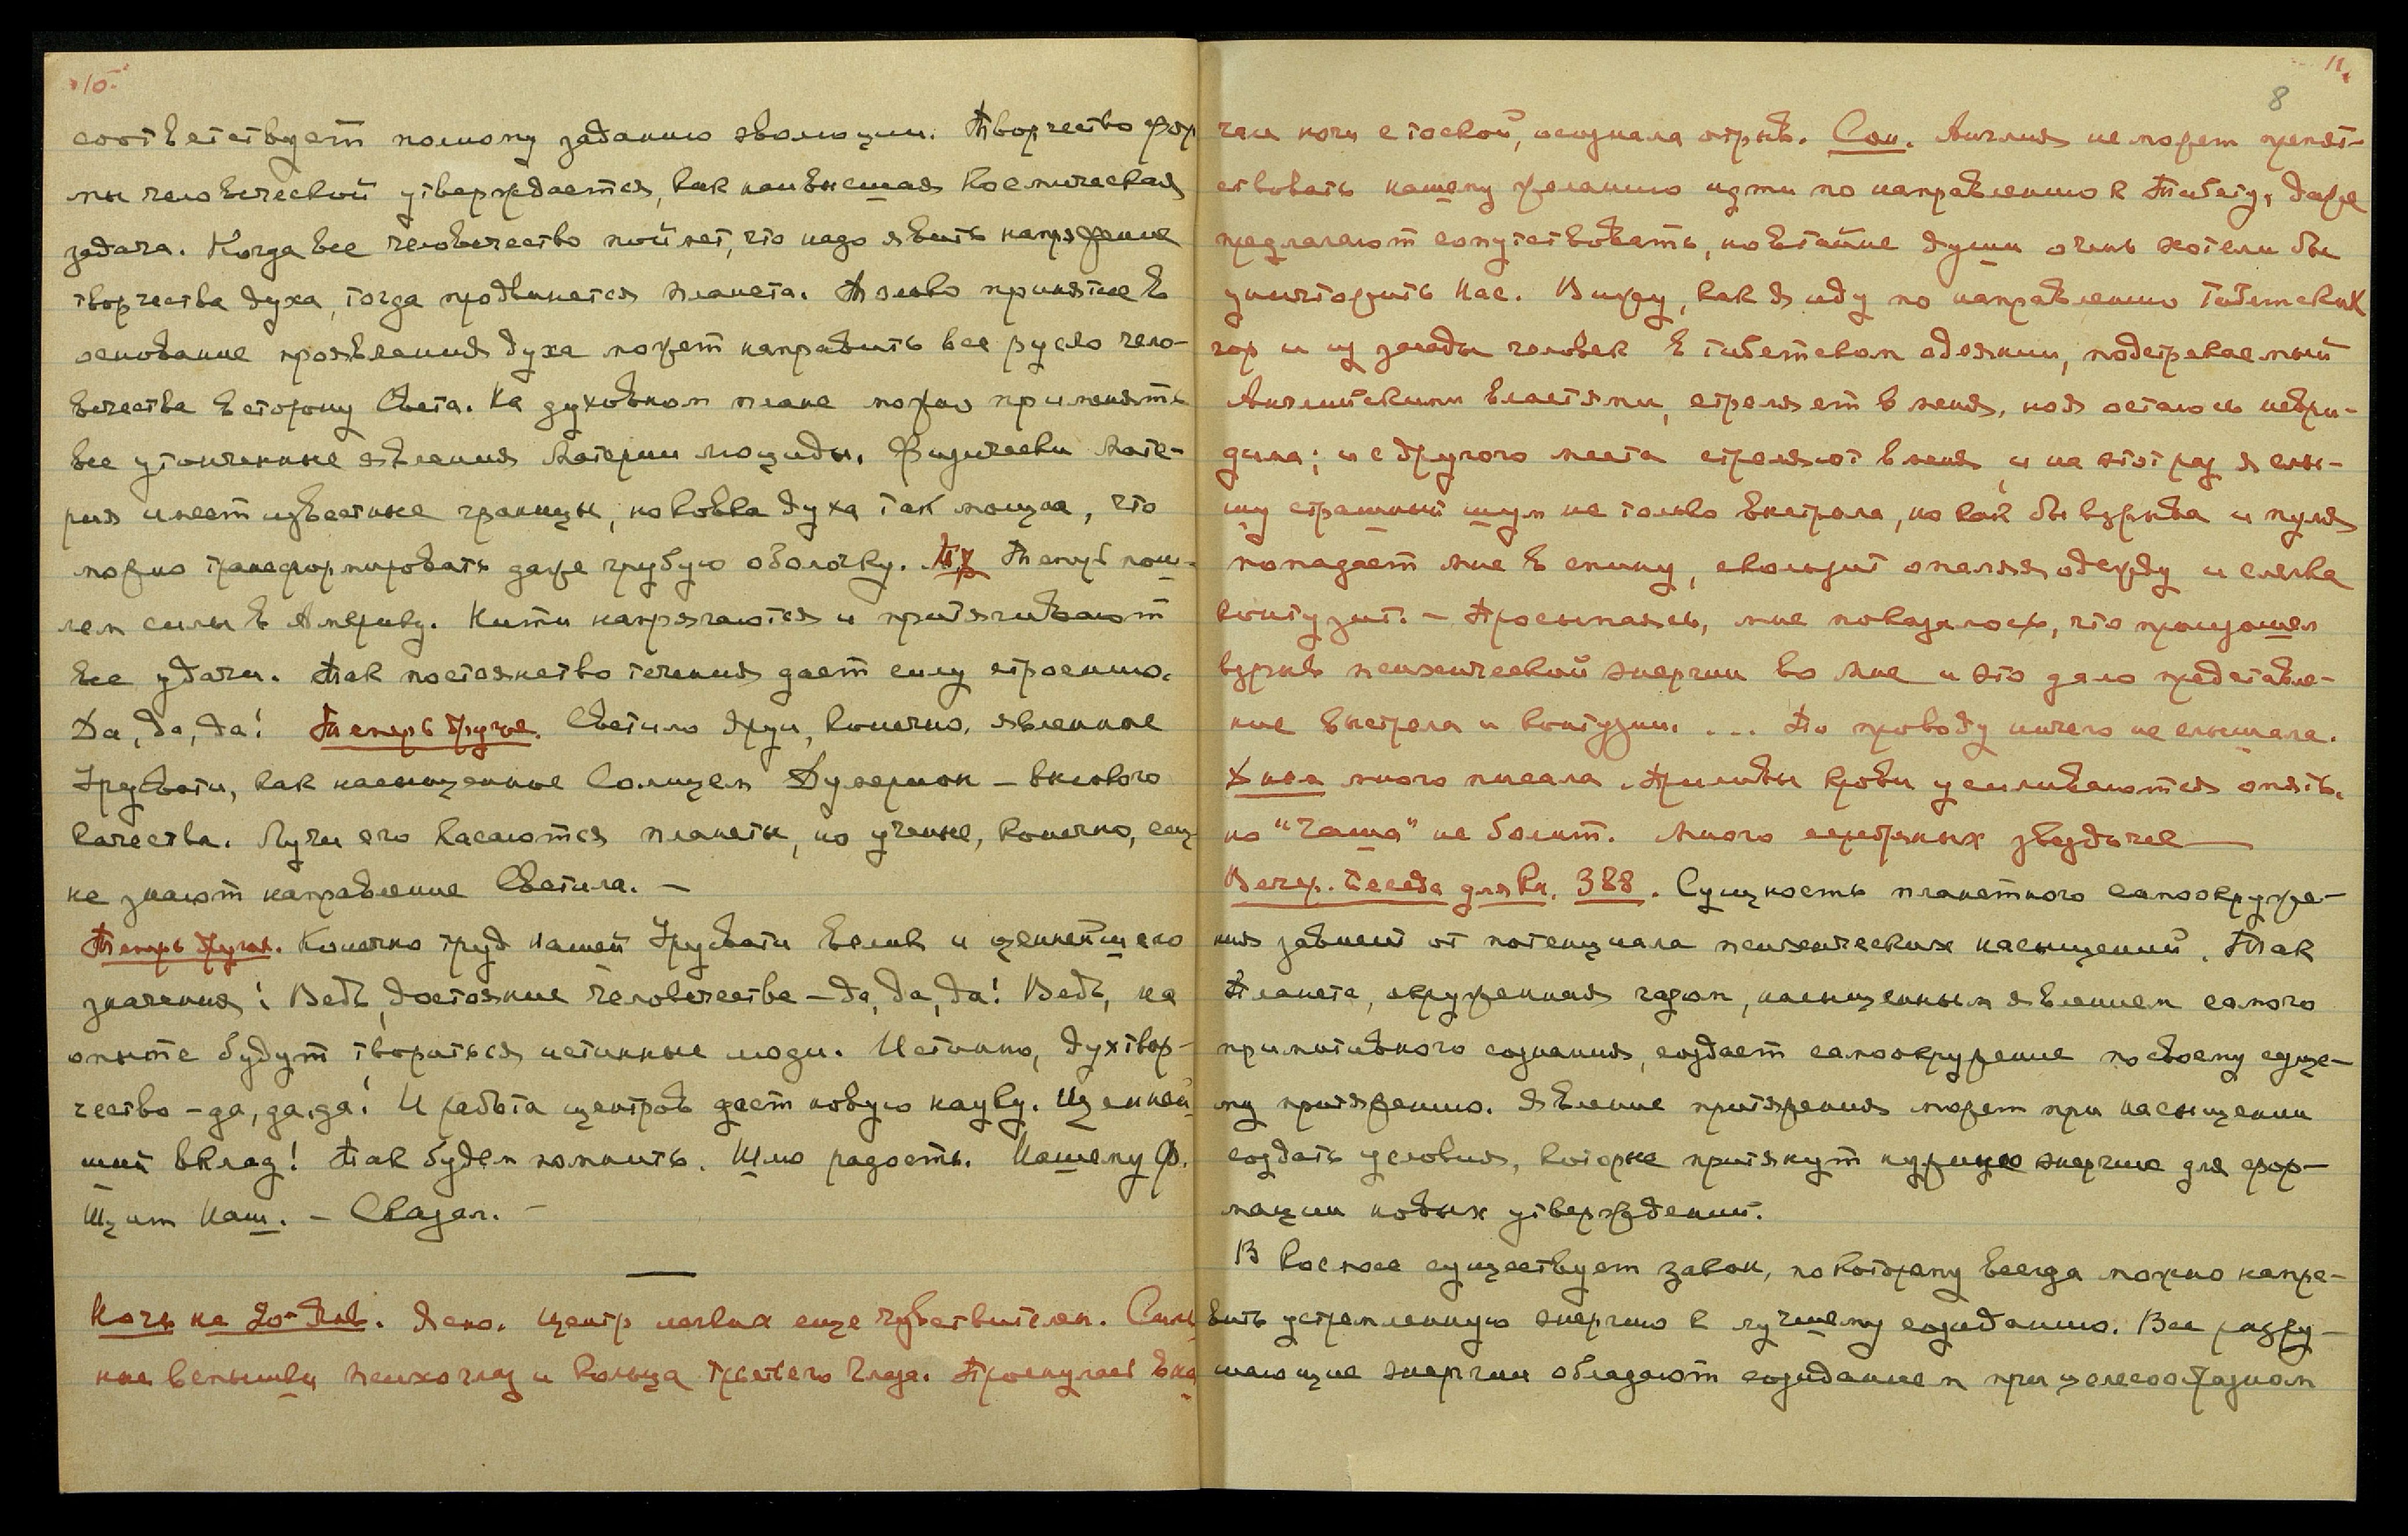 10.
соответствует полному заданию эволюции. Творчество фор
мы человеческой утверждается, как наивысшая Космическая
задача. Когда все человечество поймет, что надо явить напряжение
творчества духа, тогда продвинется планета. Только принятие в
основание проявления духа может направить все русло чело-
вечества в сторону Света. На духовном плане можно применять
все утонченные явления Материи Люциды. Физически Мате-
рия имеет известные границы, но ковка духа так мощна, что
можно трансформировать даже грубую оболочку. Теперь пош-
лем силы в Америку. Нити напрягаются и притягивают
все удачи. Так постоянство течения дает силу строению.
Да, да, да! Теперь другое. Светило друг, конечно, явленное
Урусвати, как насыщенное Солнцем Дукерион – высокого
качества. Лучи его касаются планеты, но ученые, конечно, ещ
не знают направление Светила. –
Теперь другое. Конечно труд нашей Урусвати велик и ценнейшего
значения! Ведь, достояние человечества – да, да, да! Ведь, на
опыте будут твориться истинные люди. Истинно, духтвор-
чество – да, да, да! И работа центров дает новую науку. Ценней
ший вклад! Так будем помнить. Шлю радость. Нашему Ф.
Щит Наш. – Сказал. –
Ночь на 20е Янв. Ясно. Центр легких еще чувствителен. Силь
ные вспышки психоглаз и кольца третьего глаза. Проснулась в на
11.
8
чале ночи с тоской, осознала отрыв. Сон. Англия не может препят-
ствовать нашему желанию идти по направлению к Тибету, даже
предлагают сопутствовать, но втайне души очень хотели бы
уничтожить нас. Вижу, как я иду по направлению Тибетских
гор и из засады человек в тибетском одеянии, подстрекаемый
Английскими властями, стреляет в меня, но я остаюсь невре-
дима; и с другого места стреляют в меня, и на этот раз я слы-
шу страшный шум не только выстрела, но как бы взрыва и пуля
попадает мне в спину, скользит опаляя одежду и слегка
контузит. – Просыпаясь, мне показалось, что произошел
взрыв психической энергии во мне и это дало представле-
ние выстрела и контузии. ... По проводу ничего не слышала.
Днем много писала. Приливы крови усиливаются опять,
но "Чаша" не болит. Много серебряных звездочек —
Вечер. Беседа для Кн. 388. Сущность планетного самоокруже-
ния зависит от потенциала психических насыщений. Так
Планета, окруженная газом, насыщенным явлением самого
примитивного сознания, создает самоокружение по своему суще-
му притяжению. Явление притяжения может при насыщении
создать условия, которые притянут нужную энергию для фор-
мации новых утверждений.
В Космосе существует закон, по которому всегда можно напра-
вить устремленную энергию к лучшему созиданию. Все разру-
шающие энергии обладают созиданием при целесообразном